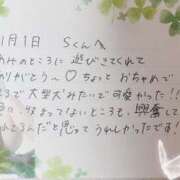 1月1日 Sくんへ
あみのところに 遊びきてくれて
ありがとう〜♡ ちょっと おちゃめで
まるで 大型犬みたいで可愛かった!!
収まってないところも、興奮して
くれてるんだと思って うれしかったです!